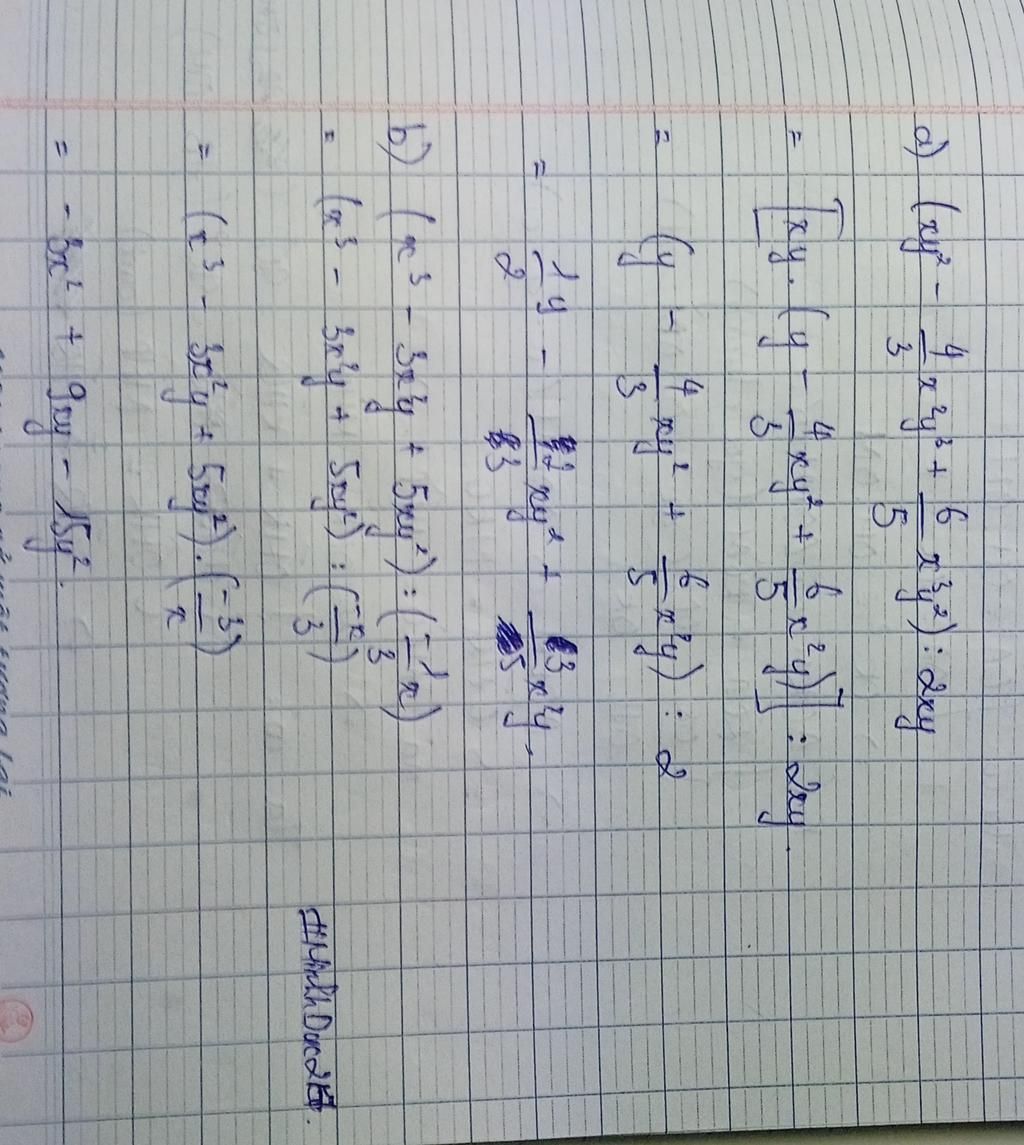 a) (xy² - 4/3 x²y³ + 6/5 x³y²) : 2xy
= [xy. (y - 4/3 xy² + 6/5 x²y)] : 2xy.
= (y - 4/3 xy² + 6/5 x²y) : 2
= 1/2 y - 2/3 xy² + 3/5 x²y.
b) (x³ - 3x²y + 5xy²) : (-1/3 x)
= (x³ - 3x²y + 5xy²) : (-x/3)
= (x³ - 3x²y + 5xy²) . (-3/x)
= -3x² + 9xy - 15y².